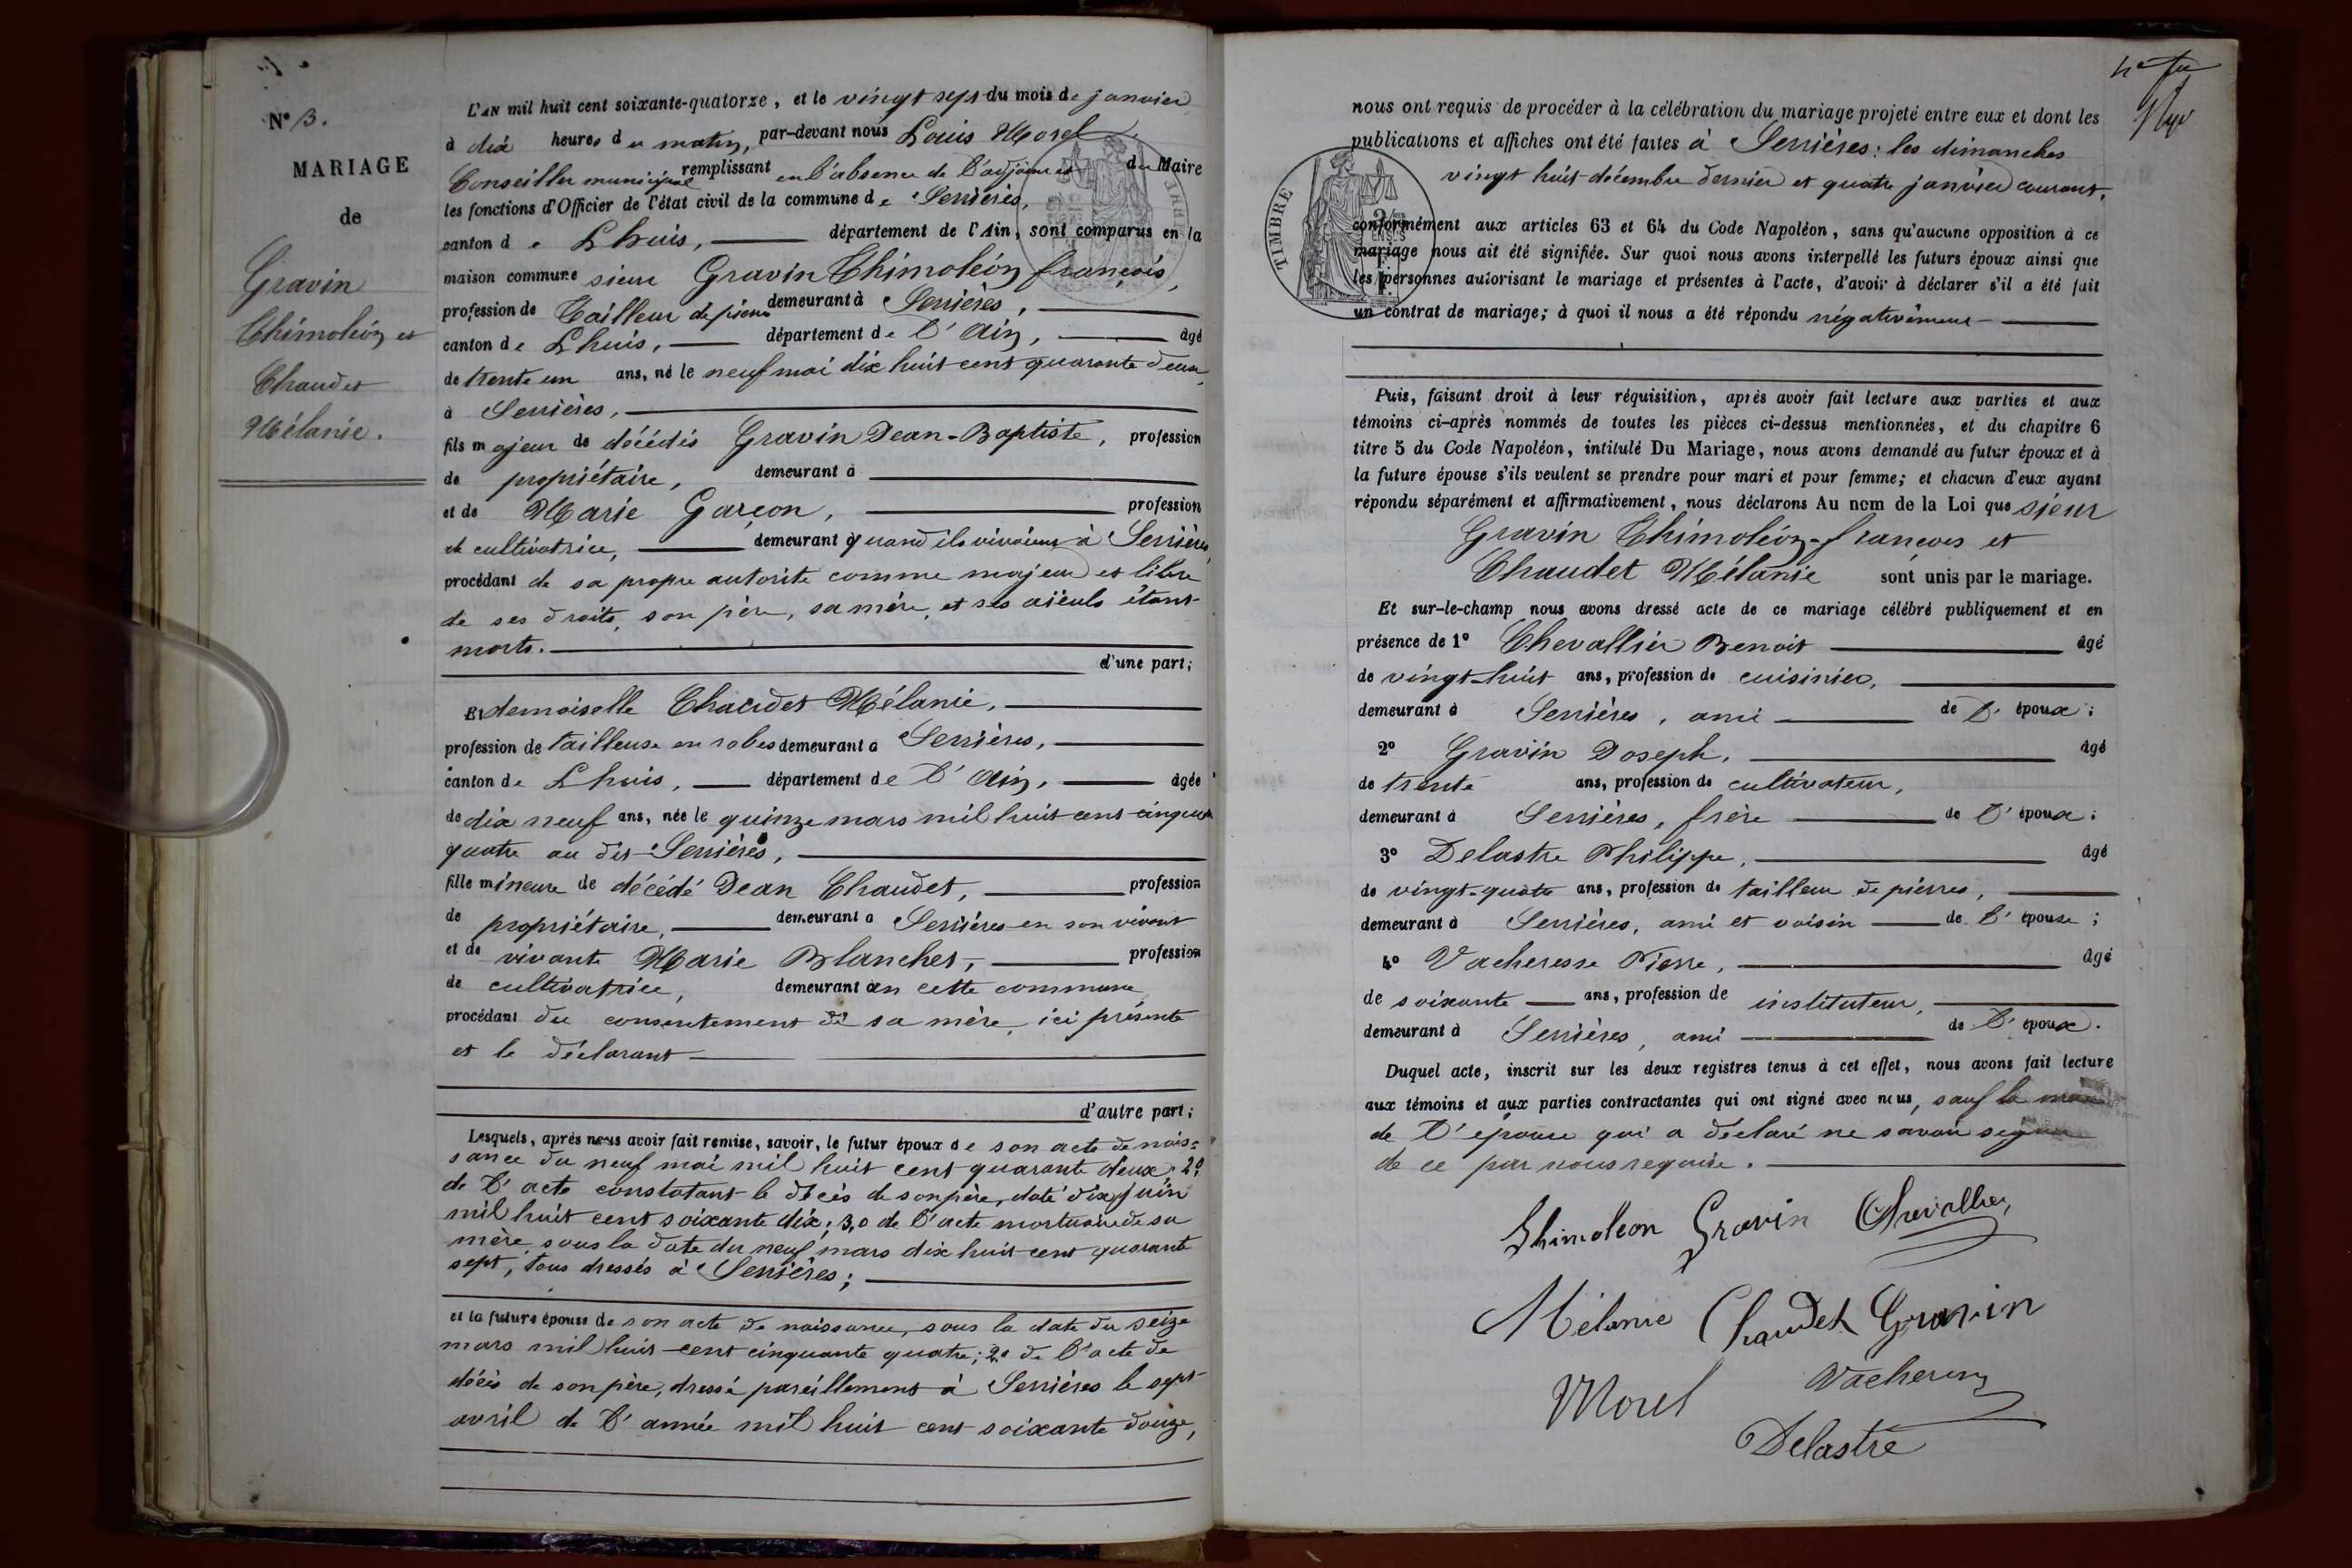 N° 3.
MARIAGE
de
Gravin
Thimoléon et
Chaudet
Mélanie.
L'AN mil huit cent soixante-quatorze, et le vingt sept du mois de janvier
à dix heures du matin, par-devant nous Louis Morel
Conseiller municipal remplissant en l'absence de l'adjoint et du Maire
les fonctions d'Officier de l'état civil de la commune de Serrières,
canton de Lhuis, département de l'Ain, sont comparus en la
maison commune sieur Gravin Thimoléon françois,
profession de Tailleur de pierre demeurant à Serrières,
canton de Lhuis, département de l'Ain, âgé
de trente un ans, né le neuf mai dix huit cent quarante deux,
à Serrières,
fils majeur de décédés Gravin Jean-Baptiste, profession
de propriétaire, demeurant à
et de Marie Garçon, profession
de cultivatrice, demeurant quand ils vivaient à Serrières,
procédant de sa propre autorité comme majeur et libre
de ses droits, son père, sa mère, et ses aïeuls étant
morts.
d'une part;
Et demoiselle Chaudet Mélanie,
profession de tailleuse en robes demeurant à Serrières,
canton de Lhuis, département de l'Ain, âgée
de dix neuf ans, née le quinze mars mil huit cent cinquante
quatre au dit Serrières,
fille mineure de décédé Jean Chaudet, profession
de propriétaire, demeurant à Serrières en son vivant
et de vivante Marie Blanchet, profession
de cultivatrice, demeurant en cette commune
procédant du consentement de sa mère, ici présente
et le déclarant
d'autre part;
Lesquels, après nous avoir fait remise, savoir, le futur époux de son acte de nais-
sance du neuf mai mil huit cent quarante deux; 2°
de l'acte constatant le décès de son père, daté dix juin
mil huit cent soixante dix; 3° de l'acte mortuaire de sa
mère sous la date du neuf mars dix huit cent quarante
sept, tous dressés à Serrières;
et la future épouse de son acte de naissance, sous la date du seize
mars mil huit cent cinquante quatre; 2° de l'acte de
décès de son père, dressé pareillement à Serrières le sept
avril de l'année mil huit cent soixante douze,
nous ont requis de procéder à la célébration du mariage projeté entre eux et dont les
publications et affiches ont été faites à Serrières: les dimanches
vingt huit décembre dernier et quatre janvier courant,
TIMBRE
conformément aux articles 63 et 64 du Code Napoléon, sans qu'aucune opposition à ce
mariage nous ait été signifiée. Sur quoi nous avons interpellé les futurs époux ainsi que
les personnes autorisant le mariage et présentes à l'acte, d'avoir à déclarer s'il a été fait
un contrat de mariage; à quoi il nous a été répondu négativement
Puis, faisant droit à leur réquisition, après avoir fait lecture aux parties et aux
témoins ci-après nommés de toutes les pièces ci-dessus mentionnées, et du chapitre 6
titre 5 du Code Napoléon, intitulé Du Mariage, nous avons demandé au futur époux et à
la future épouse s'ils veulent se prendre pour mari et pour femme; et chacun d'eux ayant
répondu séparément et affirmativement, nous déclarons Au nom de la Loi que sieur
Gravin Thimoléon-françois et
Chaudet Mélanie sont unis par le mariage.
Et sur-le-champ nous avons dressé acte de ce mariage célébré publiquement et en
présence de 1° Chevallier Benoit âgé
de vingt-huit ans, profession de cuisinier,
demeurant à Serrières, ami de l'époux;
2° Gravin Joseph, âgé
de trente ans, profession de cultivateur,
demeurant à Serrières, frère de l'époux;
3° Delastre Philippe, âgé
de vingt-quatre ans, profession de tailleur de pierres,
demeurant à Serrières, ami et voisin de l'épouse;
4° Vacheresse Pierre, âgé
de soixante ans, profession de instituteur,
demeurant à Serrières, ami de l'époux.
Duquel acte, inscrit sur les deux registres tenus à cet effet, nous avons fait lecture
aux témoins et aux parties contractantes qui ont signé avec nous, sauf la mère
de l'épouse qui a déclaré ne savoir signer
de ce par nous requise.
Thimoleon Gravin Chevallier
Mélanie Chaudet Gravin
Morel
Delastre